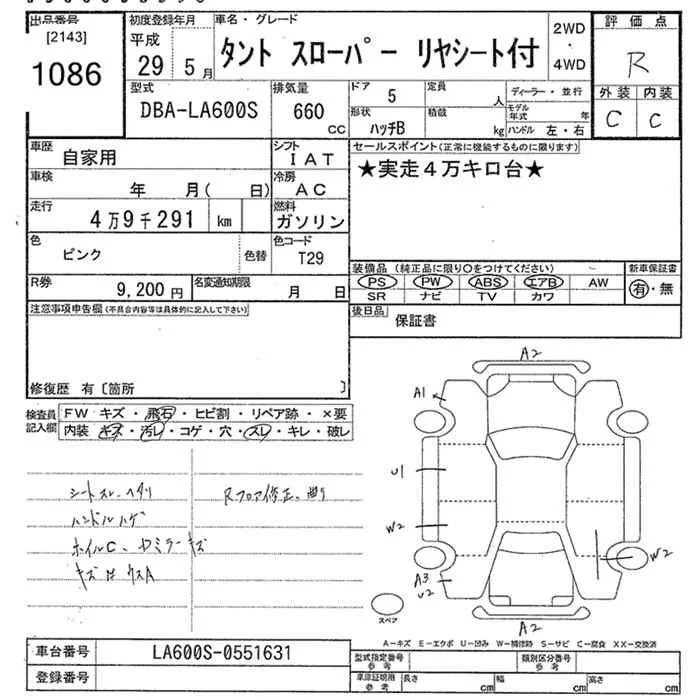 出品番号
[2143]
1086
初度登録年月
平成
29 5月
車名・グレード
タント スローパー リヤシート付
2WD
・
4WD
評価点
R
外装 内装
C C
型式
DBA-LA600S
排気量
660
cc
ドア 5
定員 人
形状 ハッチB
積載 kg
ディーラー・並行
モデル年式 年
ハンドル 左・右
車歴 自家用
シフト IAT
車検 年 月( 日)
冷房 AC
走行 4万9千291 km
燃料 ガソリン
色 ピンク
色替
色コード T29
R券 9,200円
名変通知期限 月 日
セールスポイント(正常に機能するものに限ります)
★実走4万キロ台★
装備品 (純正品に限り○をつけてください)
PS PW ABS エアB AW
SR ナビ TV カワ
新車保証書
有・無
後日品 保証書
注意事項申告欄(不具合内容等は具体的に記入して下さい)
修復歴 有〔箇所 〕
検査員記入欄
FW キズ・飛石・ヒビ割・リペア跡・×要
内装 キズ・汚レ・コゲ・穴・スレ・キレ・破レ
シートスレ、ヘタリ
ハンドルハゲ
ホイルC、
キズ
Rフロア修正、曲り
A2
A1
U1
W2
A3
U2
W2
A2
スペア
A-キズ E-エクボ U-凹み W-補修跡 S-サビ C-腐食 XX-交換済
車台番号 LA600S-0551631
登録番号
型式指定番号 参考
類別区分番号 参考
車庫証明用 参考
長さ cm
幅 cm
高さ cm